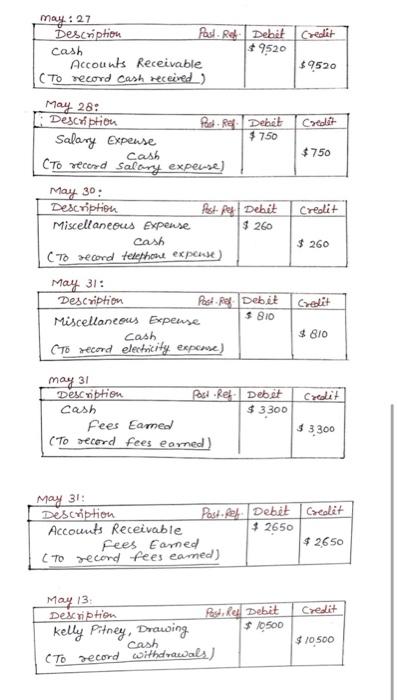 may: 27
Description Post. Ref. Debit Credit
Cash $9520
Accounts Receivable $9520
(To record cash received)
May 28:
: Description Post. Ref. Debit Credit
Salary Expense $750
Cash $750
(To record salary expense)
May 30:
Description Post. Ref Debit Credit
Miscellaneous Expense $ 260
Cash $ 260
(To record telephone expense)
May 31:
Description Post. Ref. Debit Credit
Miscellaneous Expense $ 810
Cash $ 810
(To record electricity expense)
may 31
Description Post. Ref. Debit Credit
Cash $ 3300
Fees Earned $ 3300
(To record fees earned)
May 31:
Description Post. Ref. Debit Credit
Accounts Receivable $ 2650
Fees Earned $ 2650
(To record fees earned)
May 13:
Description Post. Ref Debit Credit
kelly Pitney, Drawing $ 10500
Cash $ 10500
(To record withdrawals)